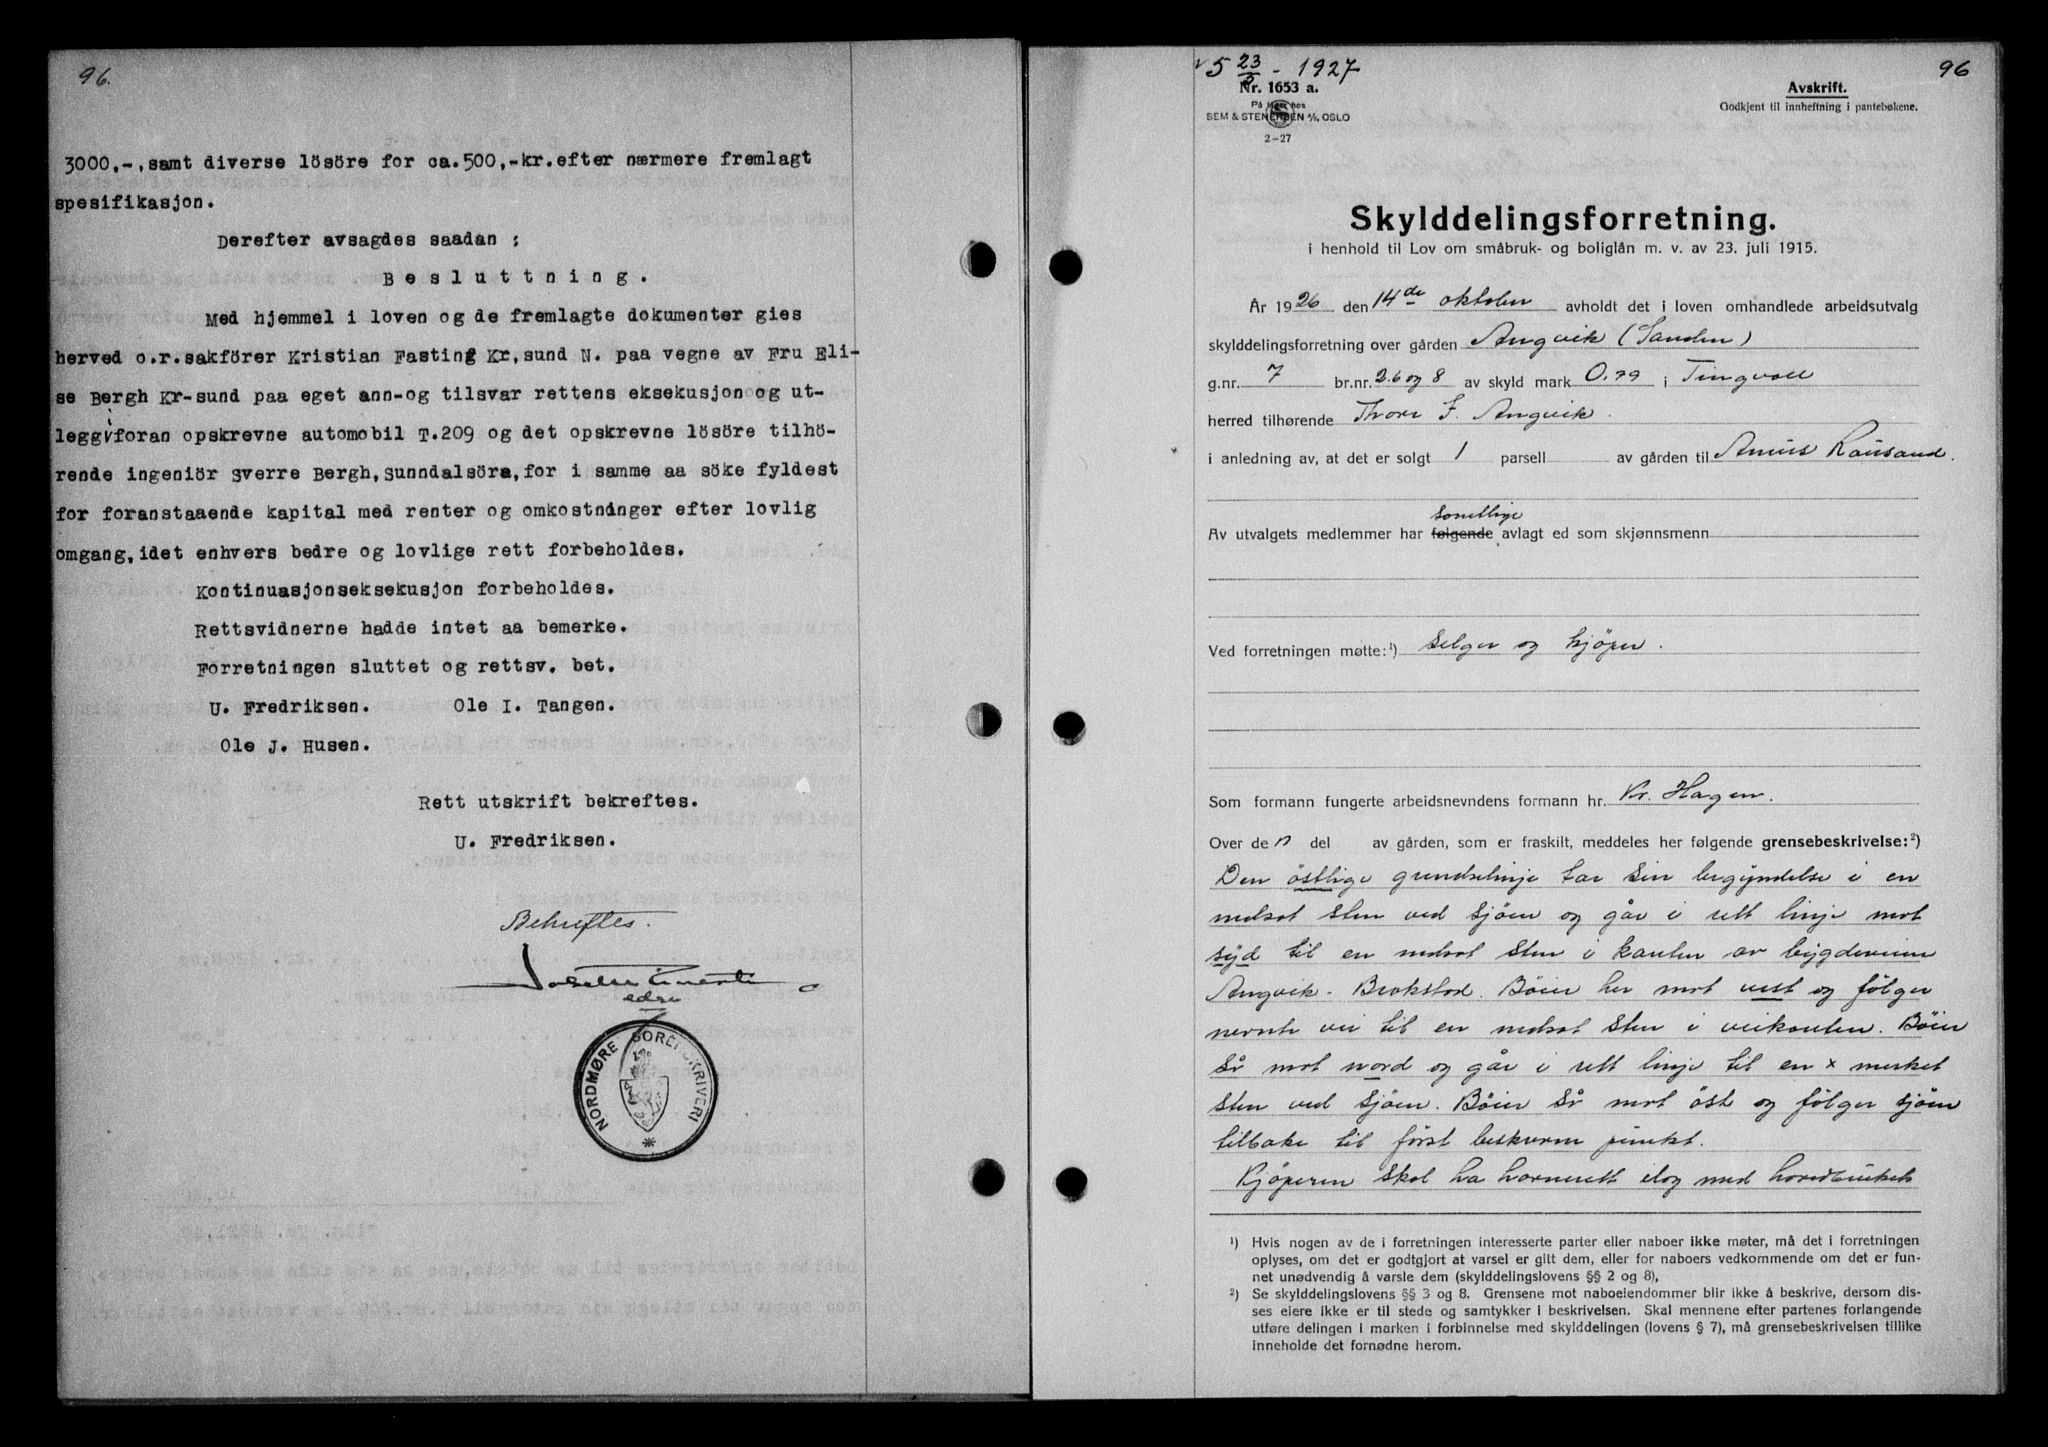 96.
3000,-, samt diverse lösöre for ca.500,-kr.efter nærmere fremlagt
spesifikasjon.
Derefter avsagdes saadan ;
Besluttning.
Med hjemmel i loven og de fremlagte dokumenter gies
herved o.r.sakförer Kristian Fasting Kr,sund N. paa vegne av Fru Eli-
se Bergh Kr-sund paa eget ann-og tilsvar rettens eksekusjon og ut-
legg i foran opskrevne automobil T.209 og det opskrevne lösöre tilhö-
rende ingeniör Sverre Bergh, Sunndalsöra, for i samme aa söke fyldest
for foranstaaende kapital med renter og omkostninger efter lovlig
omgang, idet enhvers bedre og lovlige rett forbeholdes.
Kontinuasjonseksekusjon forbeholdes.
Rettsvidnerne hadde intet aa bemerke.
Forretningen sluttet og rettsv. bet.
U. Fredriksen. Ole I. Tangen.
Ole J. Husen.
Rett utskrift bekreftes.
U. Fredriksen.
Bekreftes.
edsv
NORDMØRE SORENSKRIVERI
5 23/3 - 1927
96
Nr. 1653 a.
På lager hos
SEM & STENERSEN A/S, OSLO
2-27
Avskrift.
Godkjent til innheftning i pantebøkene.
Skylddelingsforretning.
i henhold til Lov om småbruk- og boliglån m. v. av 23. juli 1915.
År 1926 den 14de oktober avholdt det i loven omhandlede arbeidsutvalg
skylddelingsforretning over gården Angvik (Sanden)
g.nr. 7 br.nr. 2.6 og 8 av skyld mark 0.79 i Tingvoll
herred tilhørende Thore F. Angvik.
i anledning av, at det er solgt 1 parsell av gården til Anius Rausand.
samtlige
Av utvalgets medlemmer har følgende avlagt ed som skjønnsmenn
Ved forretningen møtte:¹) selger og kjöper.
Som formann fungerte arbeidsnevndens formann hr. Kr. Hagen.
Over de n del av gården, som er fraskilt, meddeles her følgende grensebeskrivelse:²)
Den östlige grændselinje tar sin begyndelse i en
nedsat sten ved sjöen og går i rett linje mot
syd til en nedsat sten i kanten av bygdeveien
Angvik - Brokstad. Böier her mot vest og fölger
nevnte vei til en nedsat sten i veikanten. Böier
så mot nord og går i rett linje til en x merket
sten ved sjöen. Böier så mot öst og fölger sjöen
tilbake til först beskrevne punkt.
Kjöperen skal ha havnerett ilag med hovedbruket
¹) Hvis nogen av de i forretningen interesserte parter eller naboer ikke møter, må det i forretningen
oplyses, om det er godtgjort at varsel er gitt dem, eller for naboers vedkommende om det er fun-
net unødvendig å varsle dem (skylddelingslovens §§ 2 og 8),
²) Se skylddelingslovens §§ 3 og 8. Grensene mot naboeiendommer blir ikke å beskrive, dersom dis-
ses eiere ikke er til stede og samtykker i beskrivelsen. Skal mennene efter partenes forlangende
utføre delingen i marken i forbinnelse med skylddelingen (lovens § 7), må grensebeskrivelsen tillike
inneholde det fornødne herom.